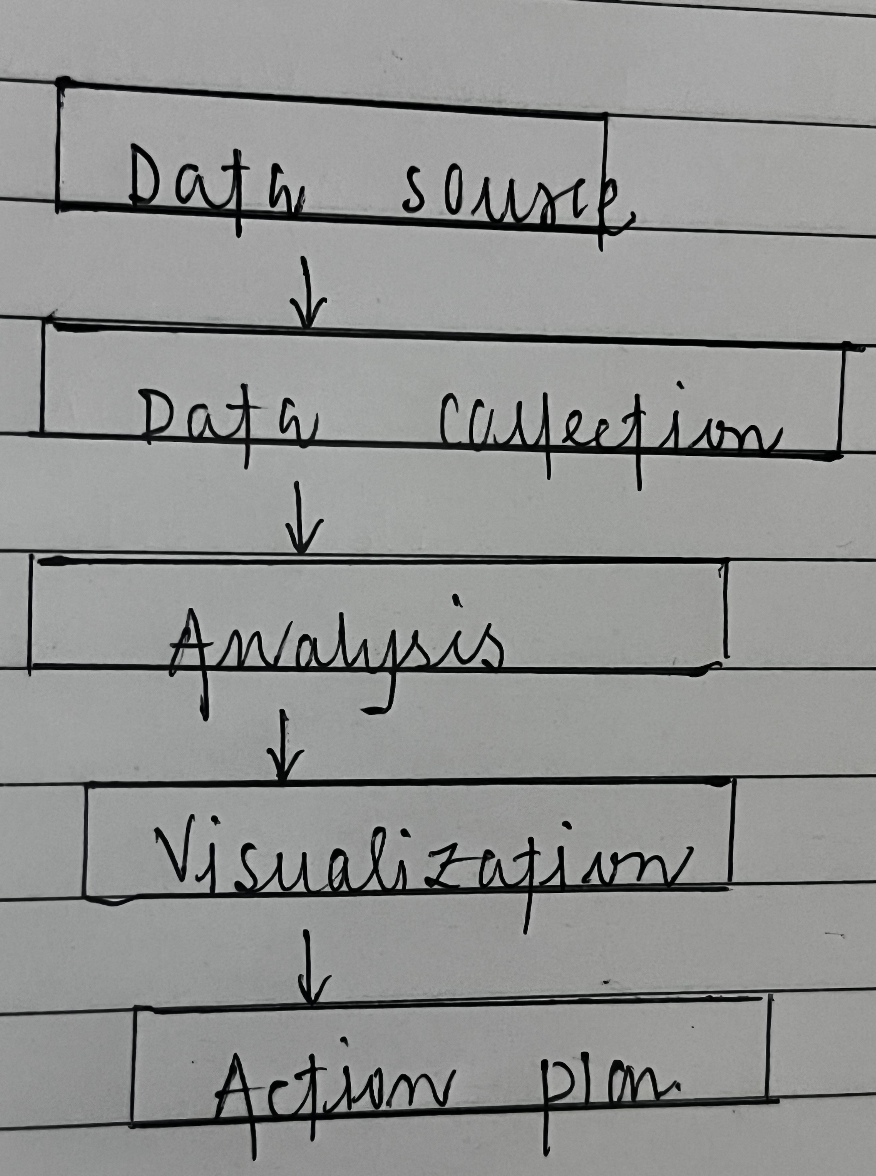 Data source
Data collection
Analysis
Visualization
Action plan